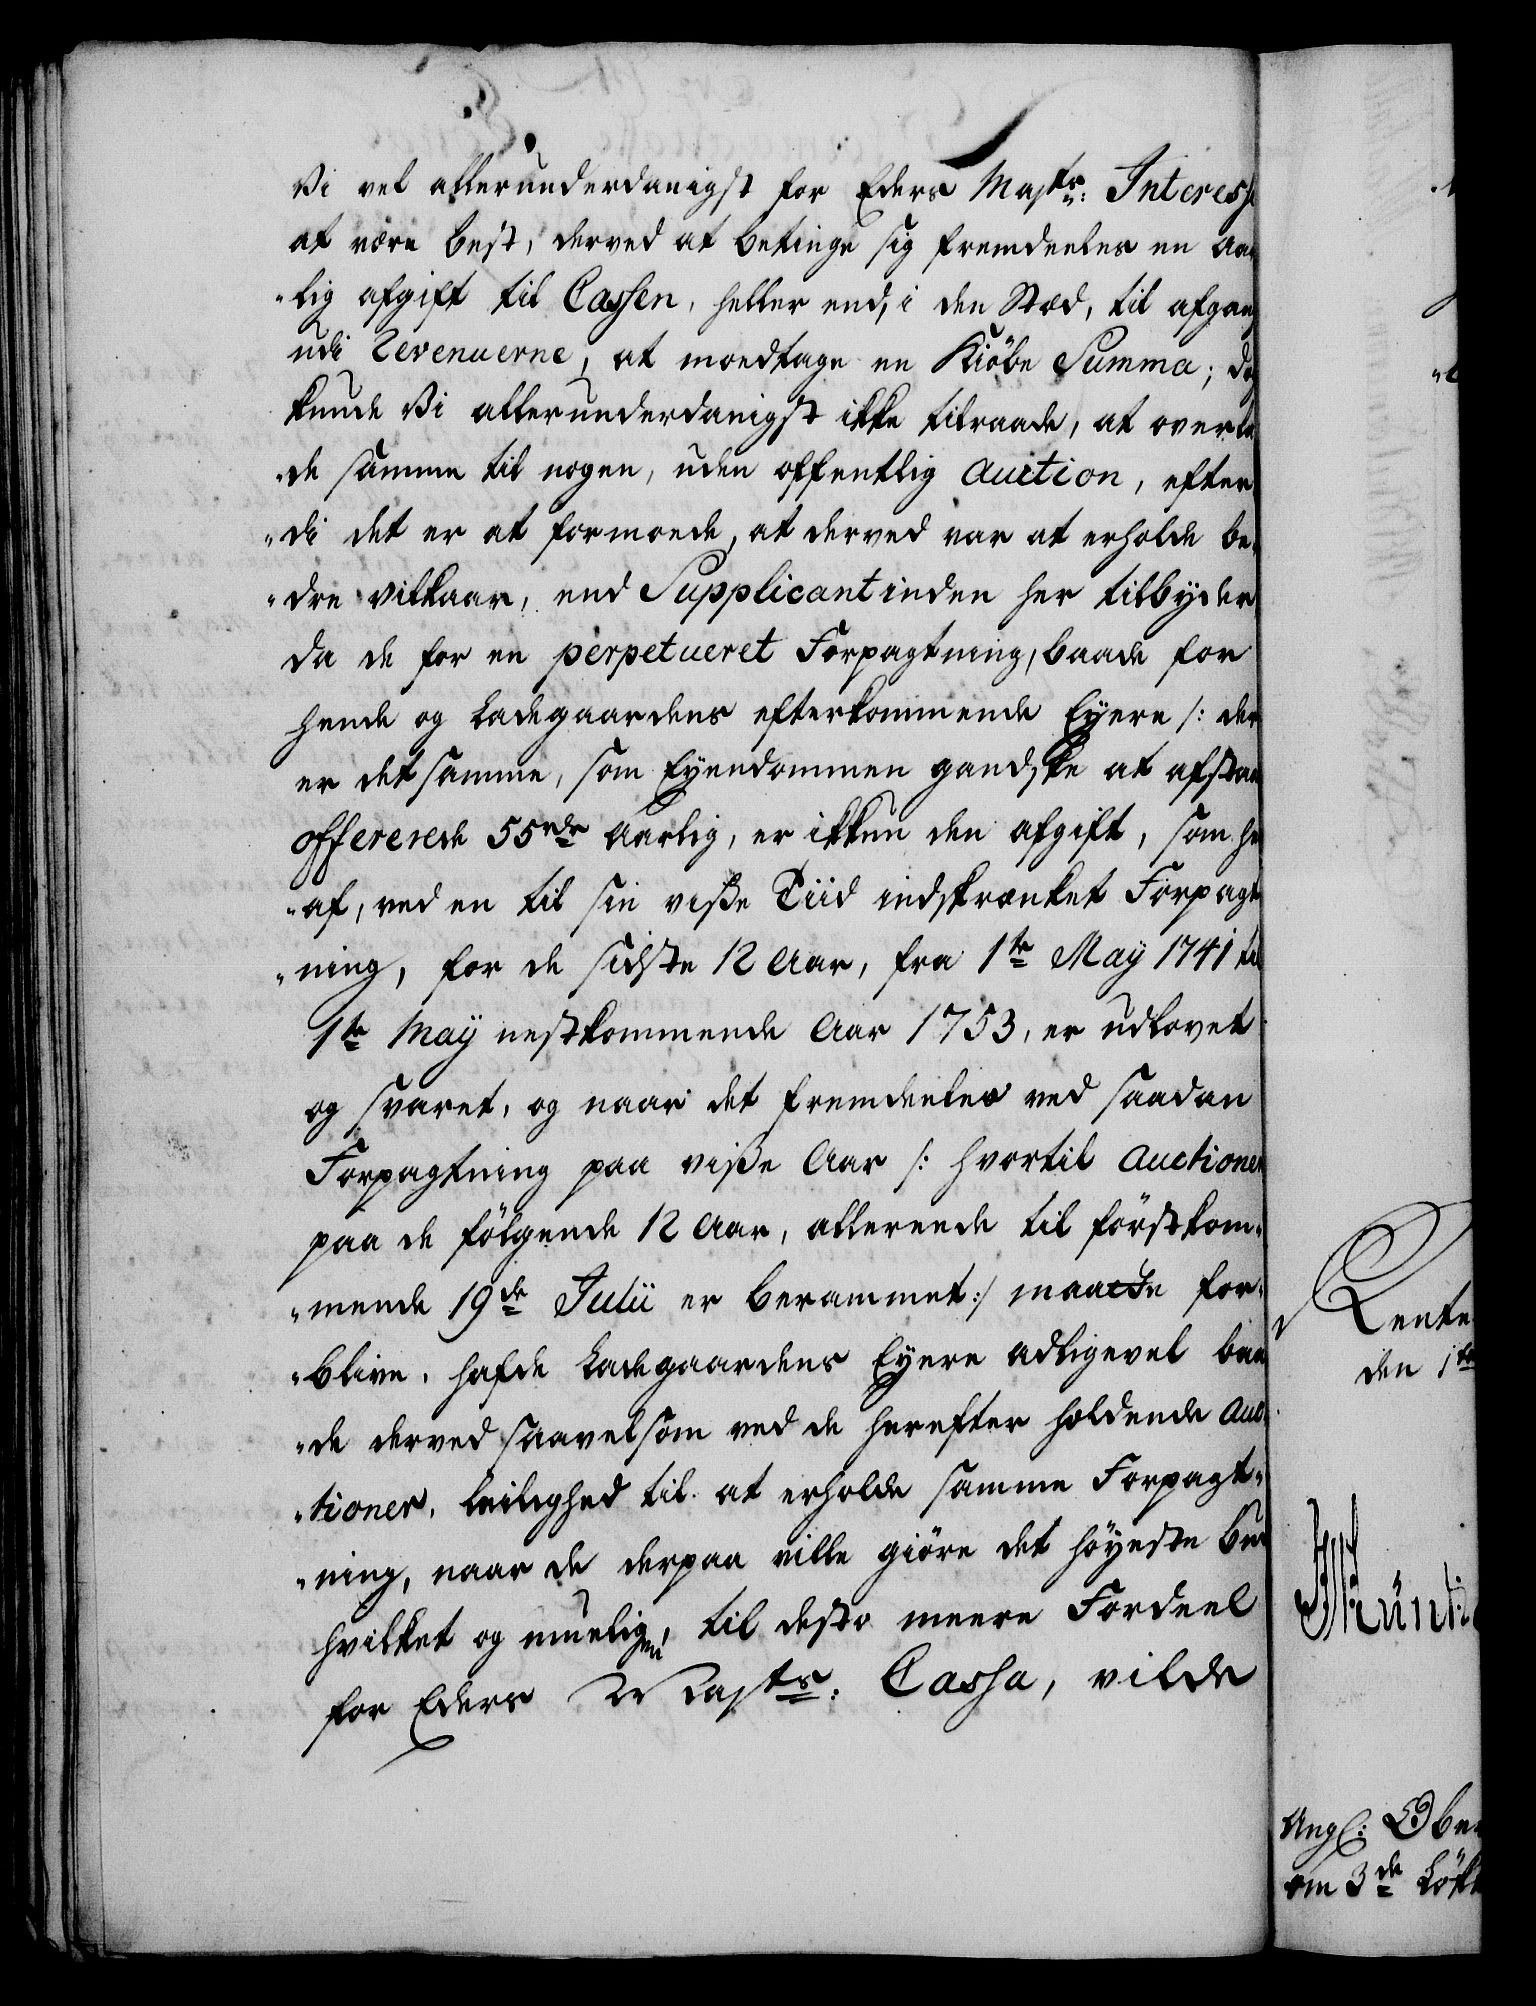 Vi vel allerunderdanigst for Eders Majts: Interesse
at være best, derved at betinge sig fremdeeles en Aar
"lig afgift til Cassen, heller end, i den Stæd, til afgang
udi Revenuerne, at modtage en Kiöbe Summa; dog
kunde Vi allerunderdanigst ikke tilraade, at overla
"de samme til nogen, uden offentlig Auction, efter
"di det er at formode, at derved var at erholde be
"dre vilkaar, end Supplicantinden her tilbyder
da de for en perpetueret Forpagtning, baade for
hende og Ladegaardens efterkommende Eyere /: der
er det samme, som Eyendommen gandske at afstaa
offererede 55 rdr Aarlig, er ikkun den afgift, som her
"af, ved en til sin visse Tiid indskrænket Forpagt
"ning, for de sidste 12 Aar, fra 1te May 1741 til
1te May nestkommende Aar 1753, er udlovet
og svaret, og naar det fremdeeles ved saadan
Forpagtning paa visse Aar /: hvortil Auctionen
paa de fölgende 12 Aar, allereede til förstkom
"mende 19de Julii er berammet :/ maatte for
"blive, hafde Ladegaardens Eyere adligevel baa
"de derved saavelsom ved de herefter holdende Auc
"tioner, leilighed til at erholde samme Forpagt
"ning, naar de derpaa ville giöre det höyeste Bud
hvilket og muelig, til desto meere Fordeel
for Eders Majts: Cassa, vilde
Rente
den 1te
Ang:
om 3de